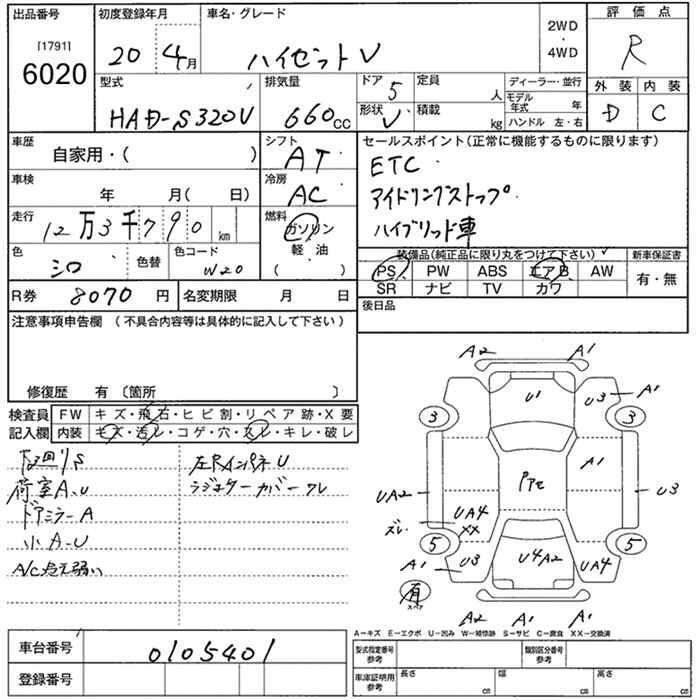 出品番号 初度登録年月 車名・グレード 2WD・4WD 評価点
[1791]
6020 20 4月 ハイゼットV R
型式 排気量 ドア 5 定員 人 ディーラー・並行 外装 内装
HAD-S320V 660cc 形状 V 積載 kg モデル年式 年 D C
ハンドル 左・右
車歴 シフト セールスポイント(正常に機能するものに限ります)
自家用・( ) AT ETC
車検 冷房 アイドリングストップ
年 月( 日) AC ハイブリッド車
走行 12万3千790km 燃料 ガソリン
軽・油
( )
色 シロ 色替 色コード W20
装備品(純正品に限り丸をつけて下さい) 新車保証書
PS PW ABS エアB AW 有・無
SR ナビ TV カワ
R券 8070円 名変期限 月 日 後日品
注意事項申告欄 (不具合内容等は具体的に記入して下さい)
修復歴 有 〔箇所 〕
検査員 FW キズ・飛石・ヒビ割・リペア跡・X要
記入欄 内装 キズ・汚レ・コゲ・穴・スレ・キレ・破レ
下回りS 左RインパネU
荷室A、U ラジエターカバーワレ
ドアミラーA
小A-U
A/C冷え弱い
A2 A1
U1 U3 A1
3 3
Pアセ A1
UA2 U3
ズレ UA4
XX
5 5
A1 U3 U4A2 UA4
有
スペア
A2 A1 A1
A-キズ E-エクボ U-凹み W-補修跡 S-サビ C-腐食 XX-交換済
車台番号 0105401
登録番号
型式指定番号 参考 類別区分番号 参考
車庫証明用 参考 長さ cm 幅 cm 高さ cm